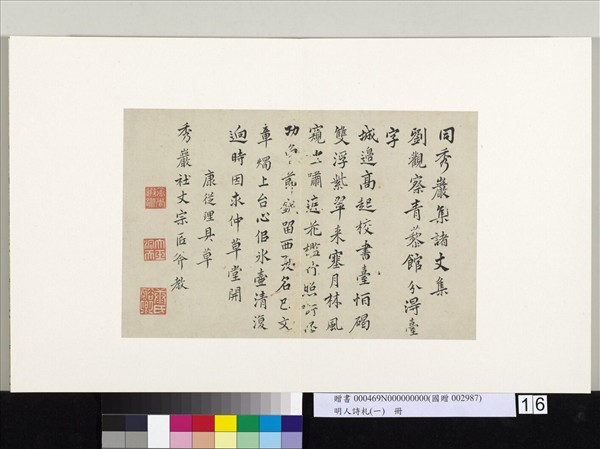 同秀巖集諸丈集
劉觀察青藜館分得臺
字
城邊高起校書臺怕碣
雙浮紫翠來塞月林風
窺 嘯 花檻 照
功名 留西 名 文
章燭上台心侶冰壺清復
迥時因求仲草堂開
康從理具草
秀巖社丈宗匠斧教
贈書 000469N000000000(國贈 002987)
明人詩札(一) 冊
16